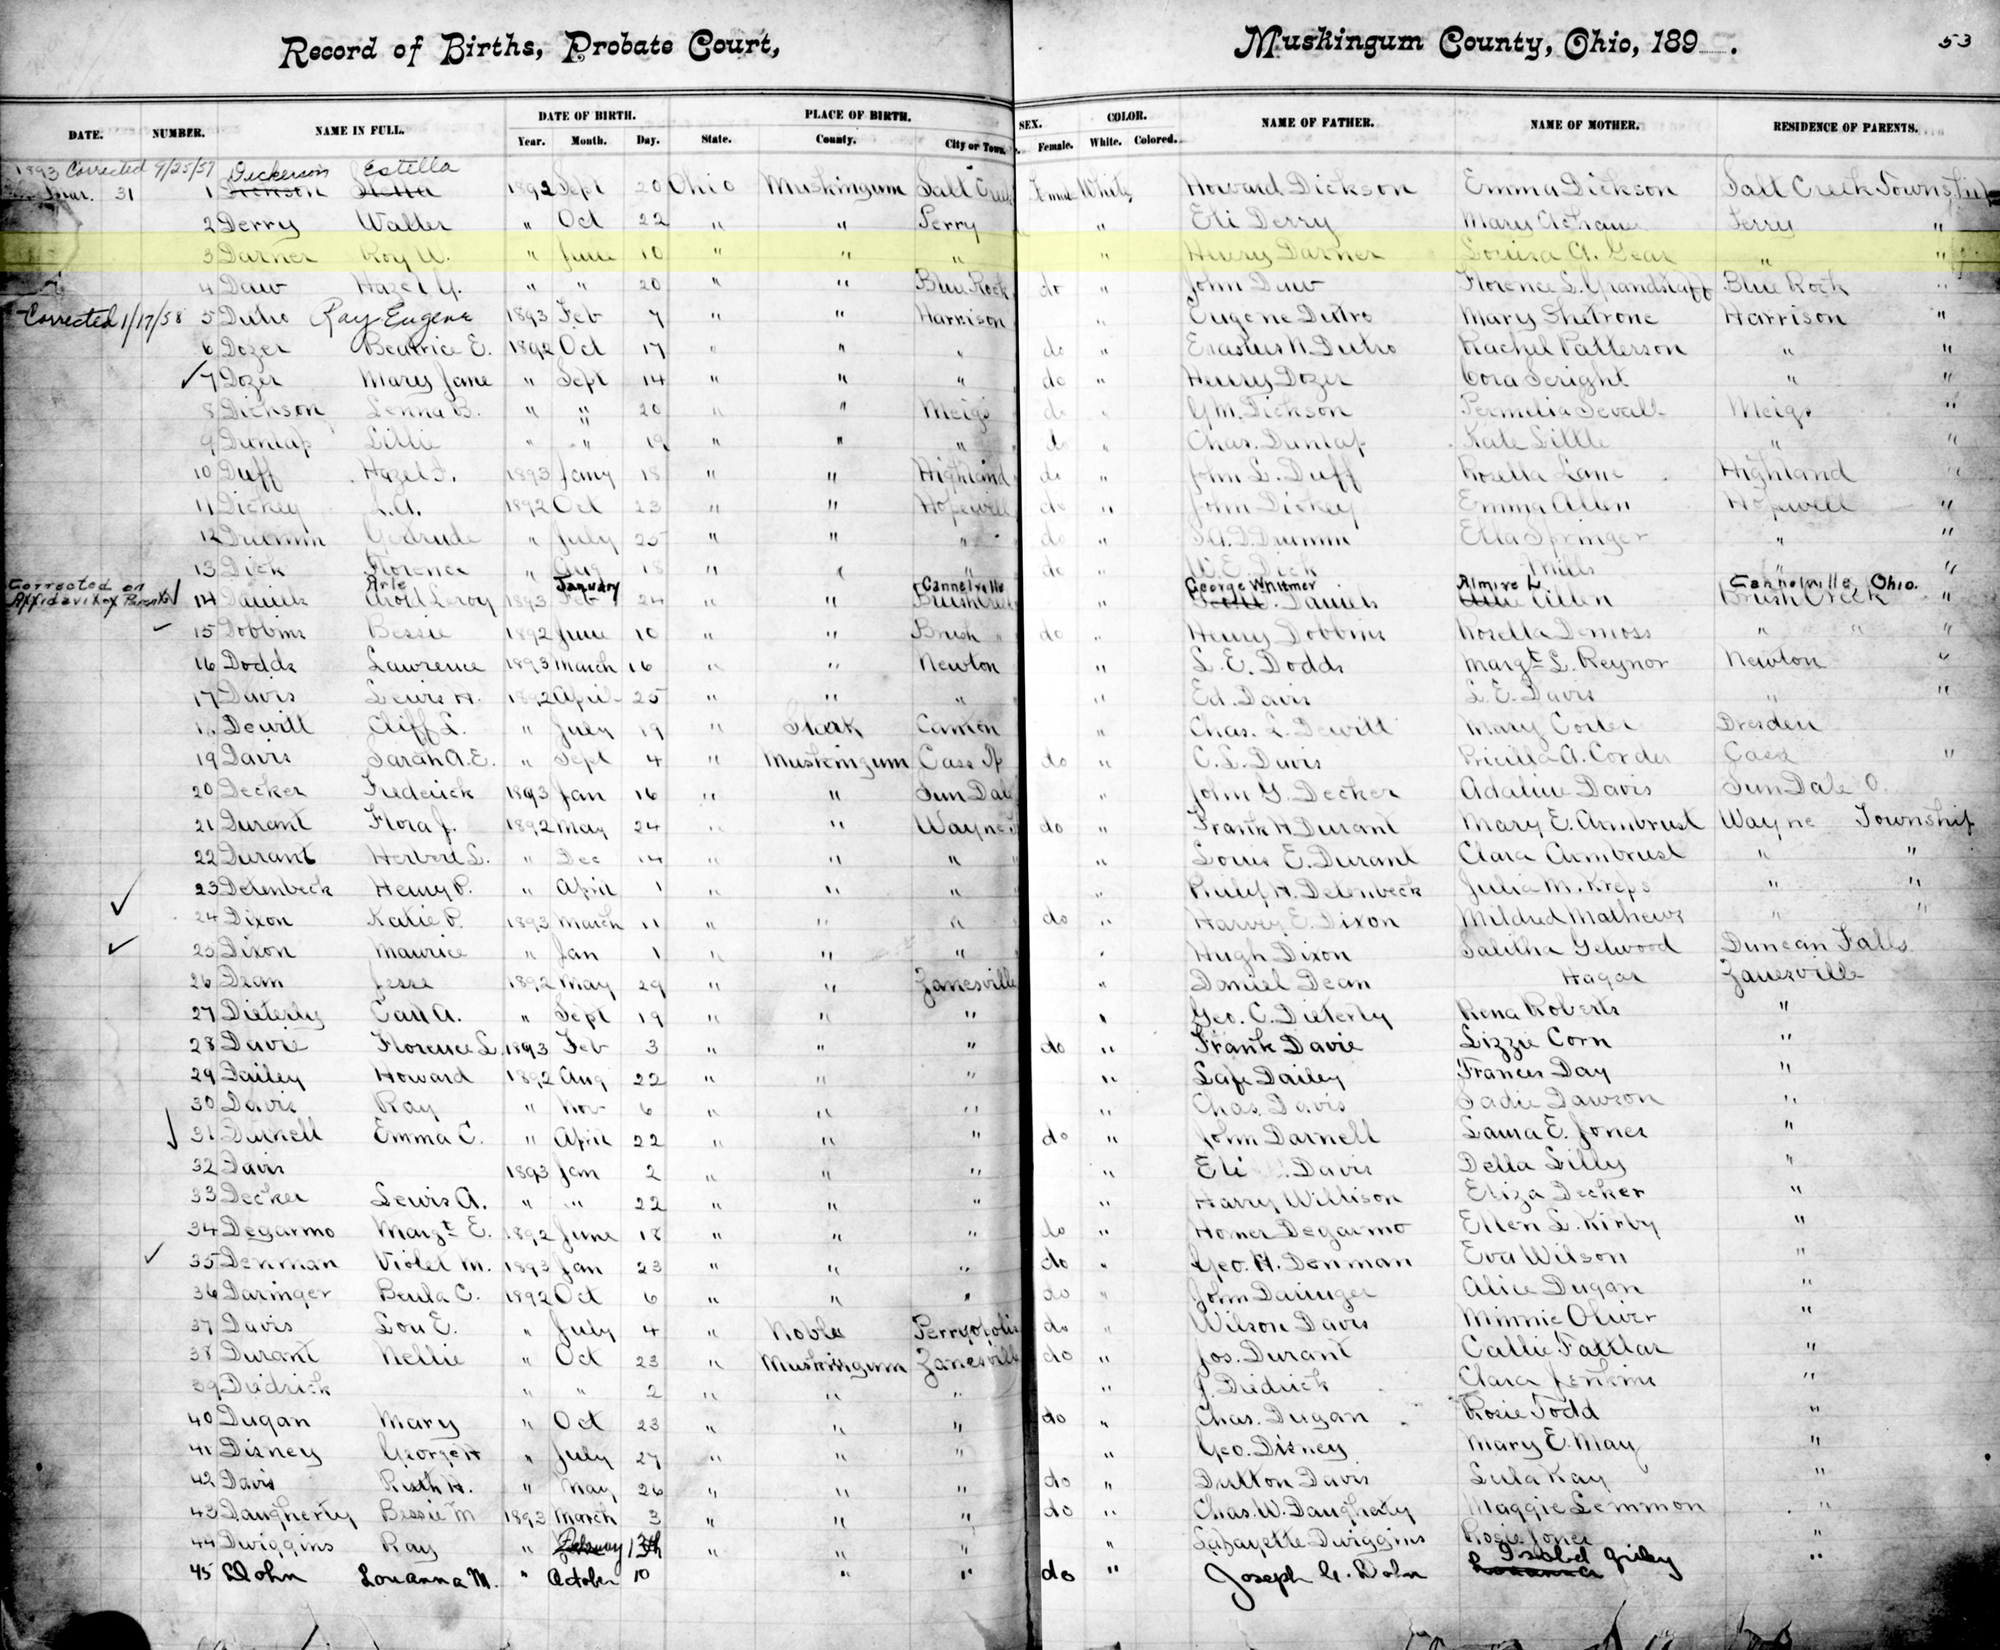 Record of Births, Probate Court, Muskingum County, Ohio, 189 . 53
DATE. NUMBER. NAME IN FULL. DATE OF BIRTH. PLACE OF BIRTH. SEX. COLOR. NAME OF FATHER. NAME OF MOTHER. RESIDENCE OF PARENTS.
Year. Month. Day. State. County. City or Town. Female. White. Colored.
1893 Corrected 9/25/57 Dickerson Estella
Mar. 31 1 Dickson Stella 1892 Sept 20 Ohio Muskingum Salt Creek Female White Howard Dickson Emma Dickson Salt Creek Township
2 Derry Walter " Oct 22 " " Perry " Eli Derry Mary Perry "
3 Darner Roy W. " June 10 " " " " Henry Darner Louisa A. Gear " "
4 Daw Hazel G. " " 20 " " Blue Rock do " John Daw Florence L. Grandstaff Blue Rock "
Corrected 1/17/58 5 Dutro Ray Eugene 1893 Feb 7 " " Harrison " Eugene Dutro Mary Shetrone Harrison "
6 Dozer Beatrice E. 1892 Oct 17 " " " do " Erasmus N. Dutro Rachel Patterson " "
7 Dozer Mary Jane " Sept 14 " " " do " Henry Dozer Cora Seright " "
8 Dickson Lenna B. " " 20 " " Meigs do " G.M. Dickson Permilia Sevall Meigs "
9 Dunlap Lillie " " 19 " " " do " Chas. Dunlap Kate Little " "
10 Duff Hazel F. 1893 Jany 18 " " Highland do " John L. Duff Rosella Lane Highland "
11 Dickey L.A. 1892 Oct 23 " " Hopewell do " John Dickey Emma Allen Hopewell "
12 Drumm Gertrude " July 25 " " " do " Drumm Ella Springer " "
13 Dick Florence " Aug 18 " " " do " W.E. Dick Mills " "
Corrected on Arle January Cannelville George Whitmer Almire L. Cannelville, Ohio.
Affidavit of Parents 14 Daniels Leroy 1893 Feb 24 " " Brush Creek " Scott Daniels Allen Brush Creek "
15 Dobbins Bessie 1892 June 10 " " Brush " do " Henry Dobbins Rosella Demoss " " "
16 Dodds Lawrence 1893 March 16 " " Newton " L. E. Dodds Margt L. Reynor Newton "
17 Davis Lewis H. 1892 April 25 " " " Ed. Davis L.E. Davis " "
18 Dewitt Cliff L. " July 19 " Stark Canton " Chas. L. Dewitt Mary Coster Dresden
19 Davis Sarah A.E. " Sept 4 " Muskingum Cass Tp do " C.L. Davis Pricilla A. Corder Cass "
20 Decker Frederick 1893 Jan 16 " " Sun Dale " John G. Decker Adaline Davis Sun Dale O.
21 Durant Flora J. 1892 May 24 " " Wayne T do " Frank H. Durant Mary E. Armbrust Wayne Township
22 Durant Herbert L. " Dec 14 " " " " Louis E. Durant Clara Armbrust " "
23 Detenbeck Henry P. " April 1 " " " " Philip H. Detenbeck Julia M. Kreps " "
24 Dixon Katie P. 1893 March 11 " " " do " Harvey E. Dixon Mildred Mathews " "
25 Dixon Maurice " Jan 1 " " " " Hugh Dixon Talitha Getwood Duncan Falls
26 Dean Jesse 1892 May 29 " " Zanesville " Daniel Dean Hagar Zanesville
27 Dieterly Carl A. " Sept 19 " " " " Geo. C. Dieterly Rena Roberts "
28 Davie Florence L. 1893 Feb 3 " " " do " Frank Davie Lizzie Corn "
29 Dailey Howard 1892 Aug 22 " " " Lafe Dailey Frances Day "
30 Davis Ray " Nov 6 " " " " Chas. Davis Sadie Dawson "
31 Darnell Emma C. " April 22 " " " do " John Darnell Laura E. Jones "
32 Davis 1893 Jan 2 " " " " Eli Davis Della Lilly "
33 Decker Lewis A. " " 22 " " " " Harry Willison Eliza Decker "
34 Degarmo Margt E. 1892 June 18 " " " do " Homer Degarmo Ellen L. Kirby "
35 Denman Violet M. 1893 Jan 23 " " " do " Geo. H. Denman Eva Wilson "
36 Daringer Beula C. 1892 Oct 6 " " " do " John Daringer Alice Dugan "
37 Davis Lou E. " July 4 " Noble Perryopolis do " Wilson Davis Minnie Oliver "
38 Durant Nellie " Oct 23 " Muskingum Zanesville do " Jos. Durant Callie Fattlar "
39 Diedrick " " 2 " " " " J. Diedrick Clara Jenkins "
40 Dugan Mary " Oct 23 " " " do " Chas. Dugan Rosie Todd "
41 Disney George H " July 27 " " " " Geo. Disney Mary E. May "
42 Davis Ruth H. " May 26 " " " do " Dutton Davis Lula Kay "
43 Daugherty Bessie M 1893 March 3 " " " do " Chas. W. Daugherty Maggie Lemmon "
44 Dwiggins Ray " February 13th " " " " Lafayette Dwiggins Rosie Jones "
45 Dohn Louanna M. " October 10 " " do " Joseph G. Dohn Louanna Isabel Griley "